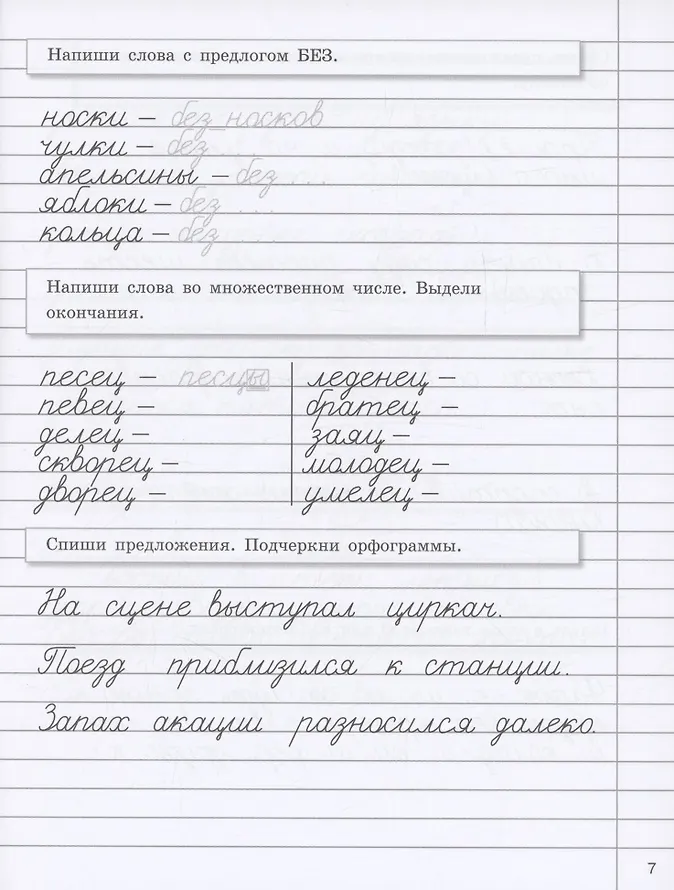 Напиши слова с предлогом БЕЗ.
носки – без носков
чулки – без ...
апельсины – без ...
яблоки – без ...
кольца – без ...
Напиши слова во множественном числе. Выдели
окончания.
песец – песцы
певец –
делец –
скворец –
дворец –
леденец –
братец –
заяц –
молодец –
умелец –
Спиши предложения. Подчеркни орфограммы.
На сцене выступал циркач.
Поезд приблизился к станции.
Запах акации разносился далеко.
7